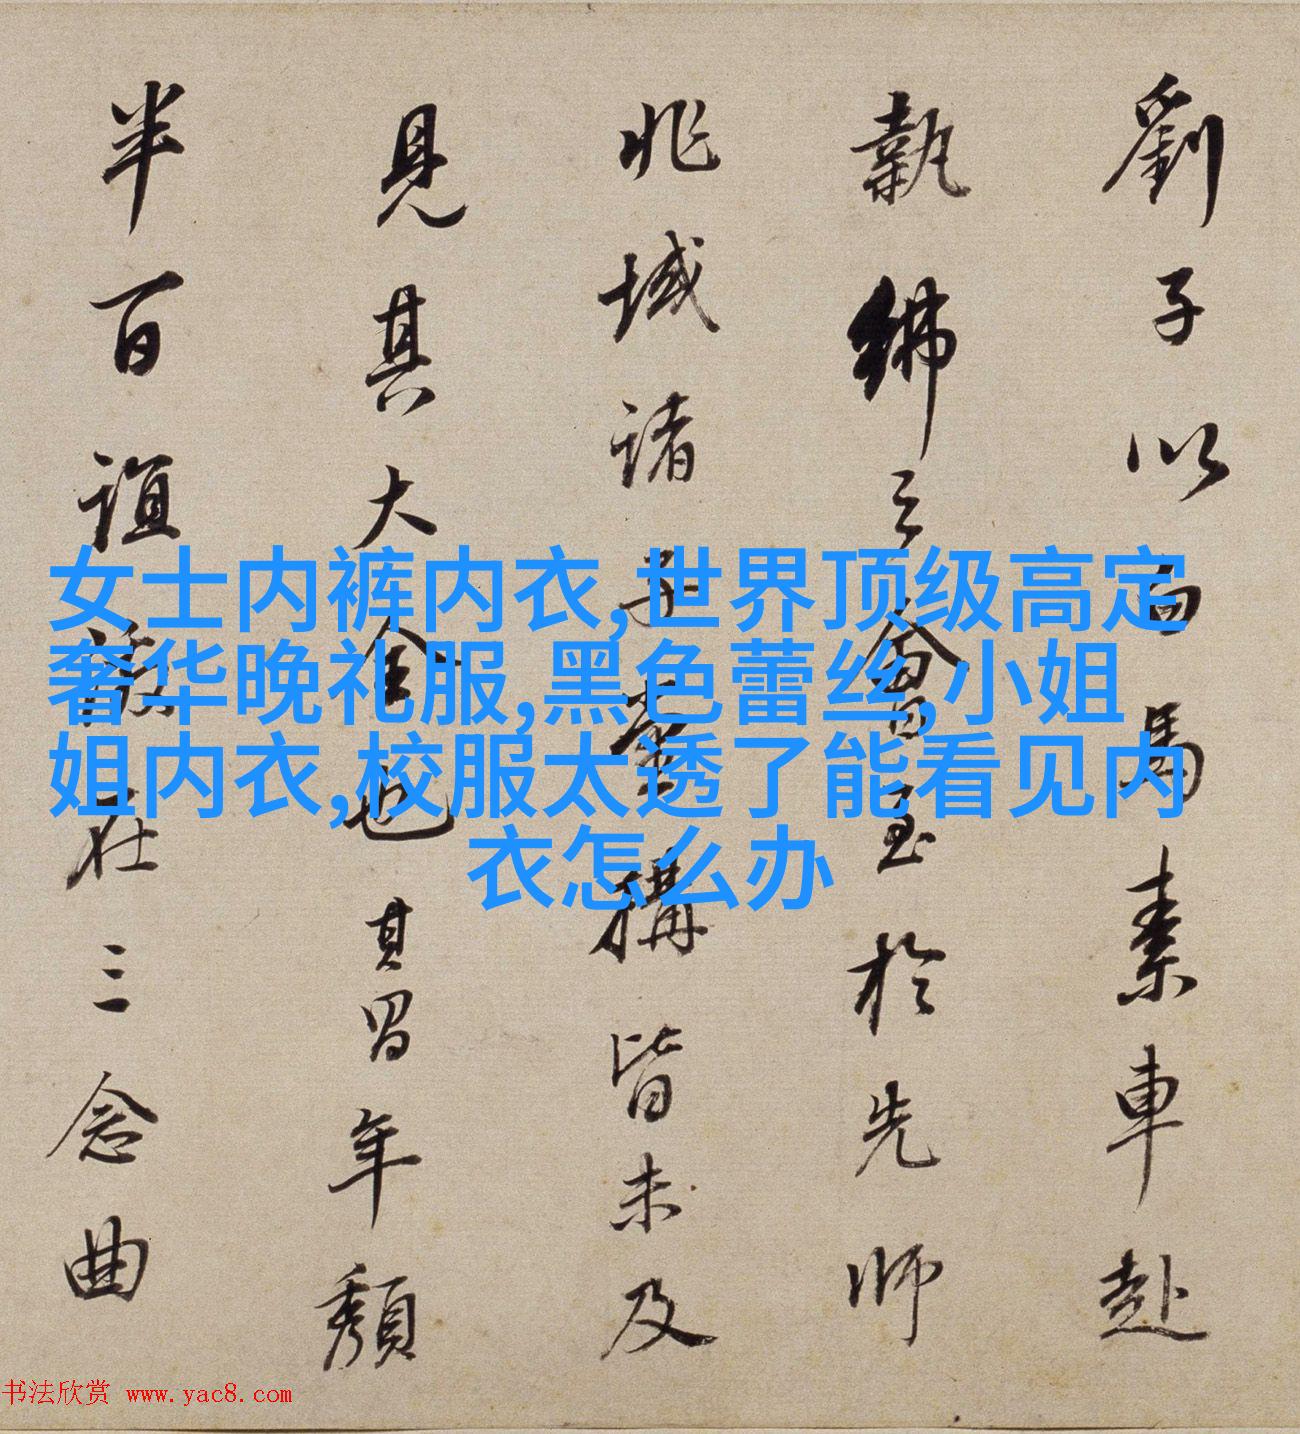 劉子以白馬素車赴
執紼之會至於先師
兆域諸子營構皆未及
見其大全也其胃年頽
半百誼敦在三念曲
女士内裤内衣,世界顶级高定
奢华晚礼服,黑色蕾丝,小姐
姐内衣,校服太透了能看见内
衣怎么办
书法欣赏 www.yac8.com